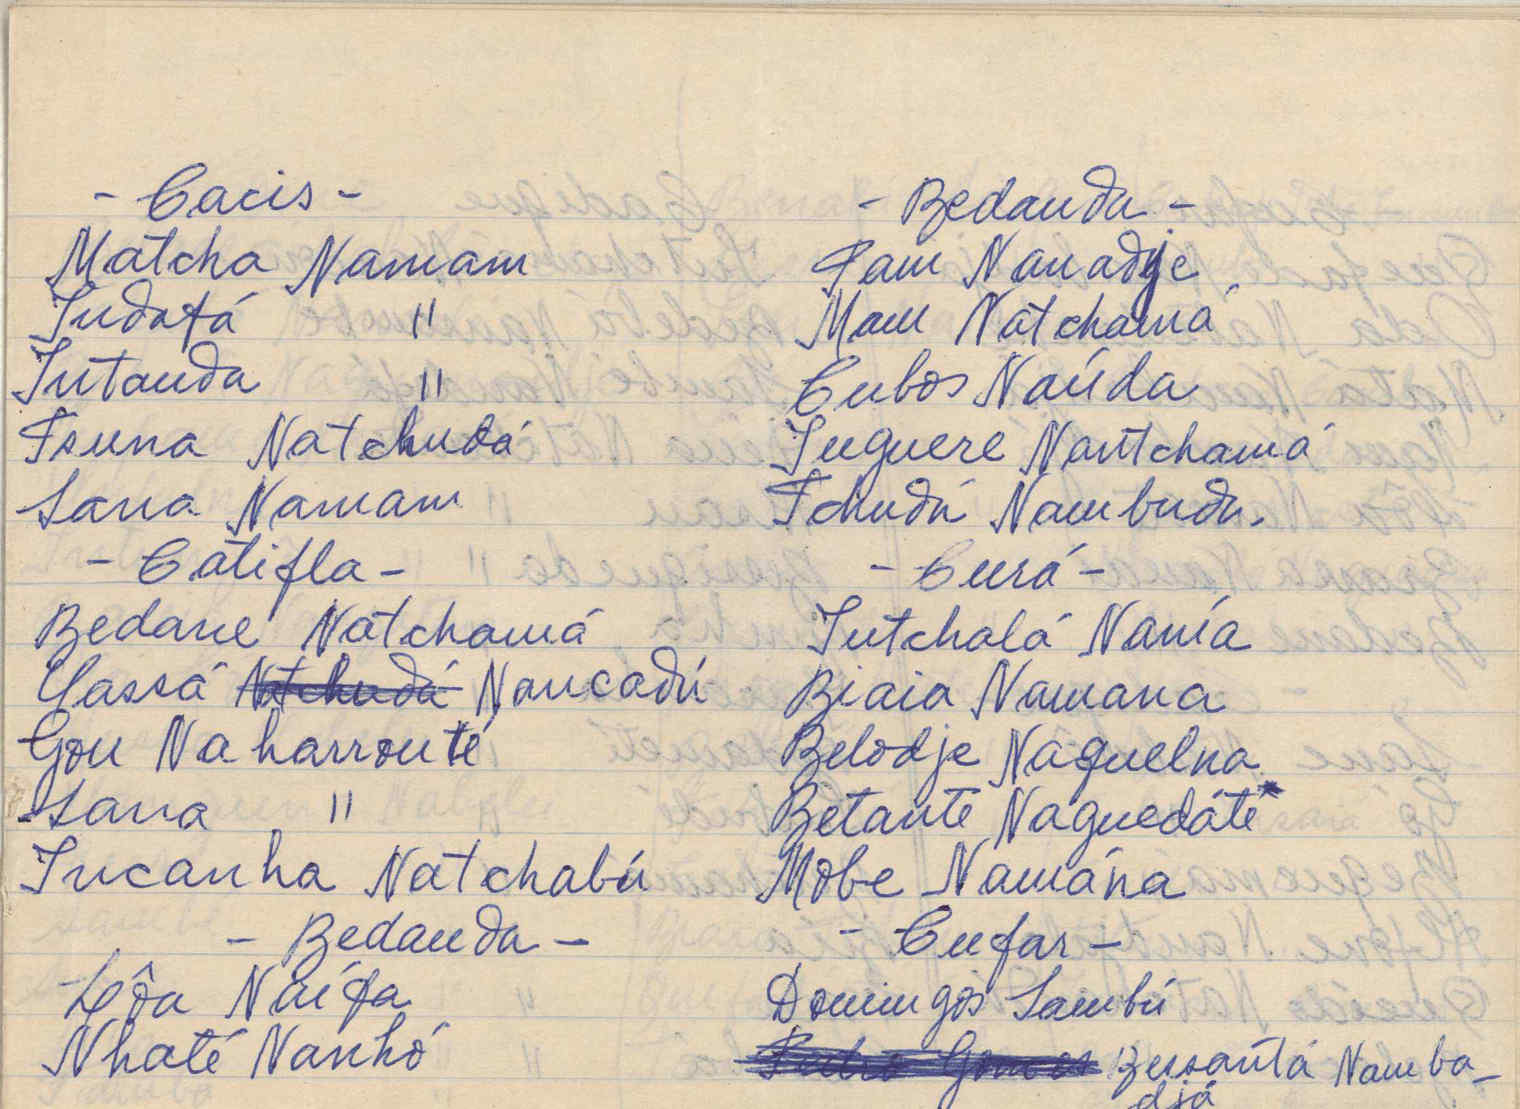 - Cacis -
Matcha Namam
Indafá "
Intanda "
Tsuna Natchudá
Sana Namam
- Catifla -
Bedane Natchamá
Yassá Natchudá Nancadú
Gou Naharronté
Sana "
Incanha Natchabú
- Bedanda -
Lôa Naífa
Nhaté Nanhó
- Bedanda -
Pam Nanadje
Mam Natchamá
Cubos Naúda
Inguere Nantchamá
Tchudú Nambudu.
- Curá -
Intchalá Nanía
Biaia Namana
Belodje Naquelna
Betante Naguedáte
Mobe Namána
- Cufar -
Domingos Sambú
Pedro Gomes Bessantá Namba-
djá